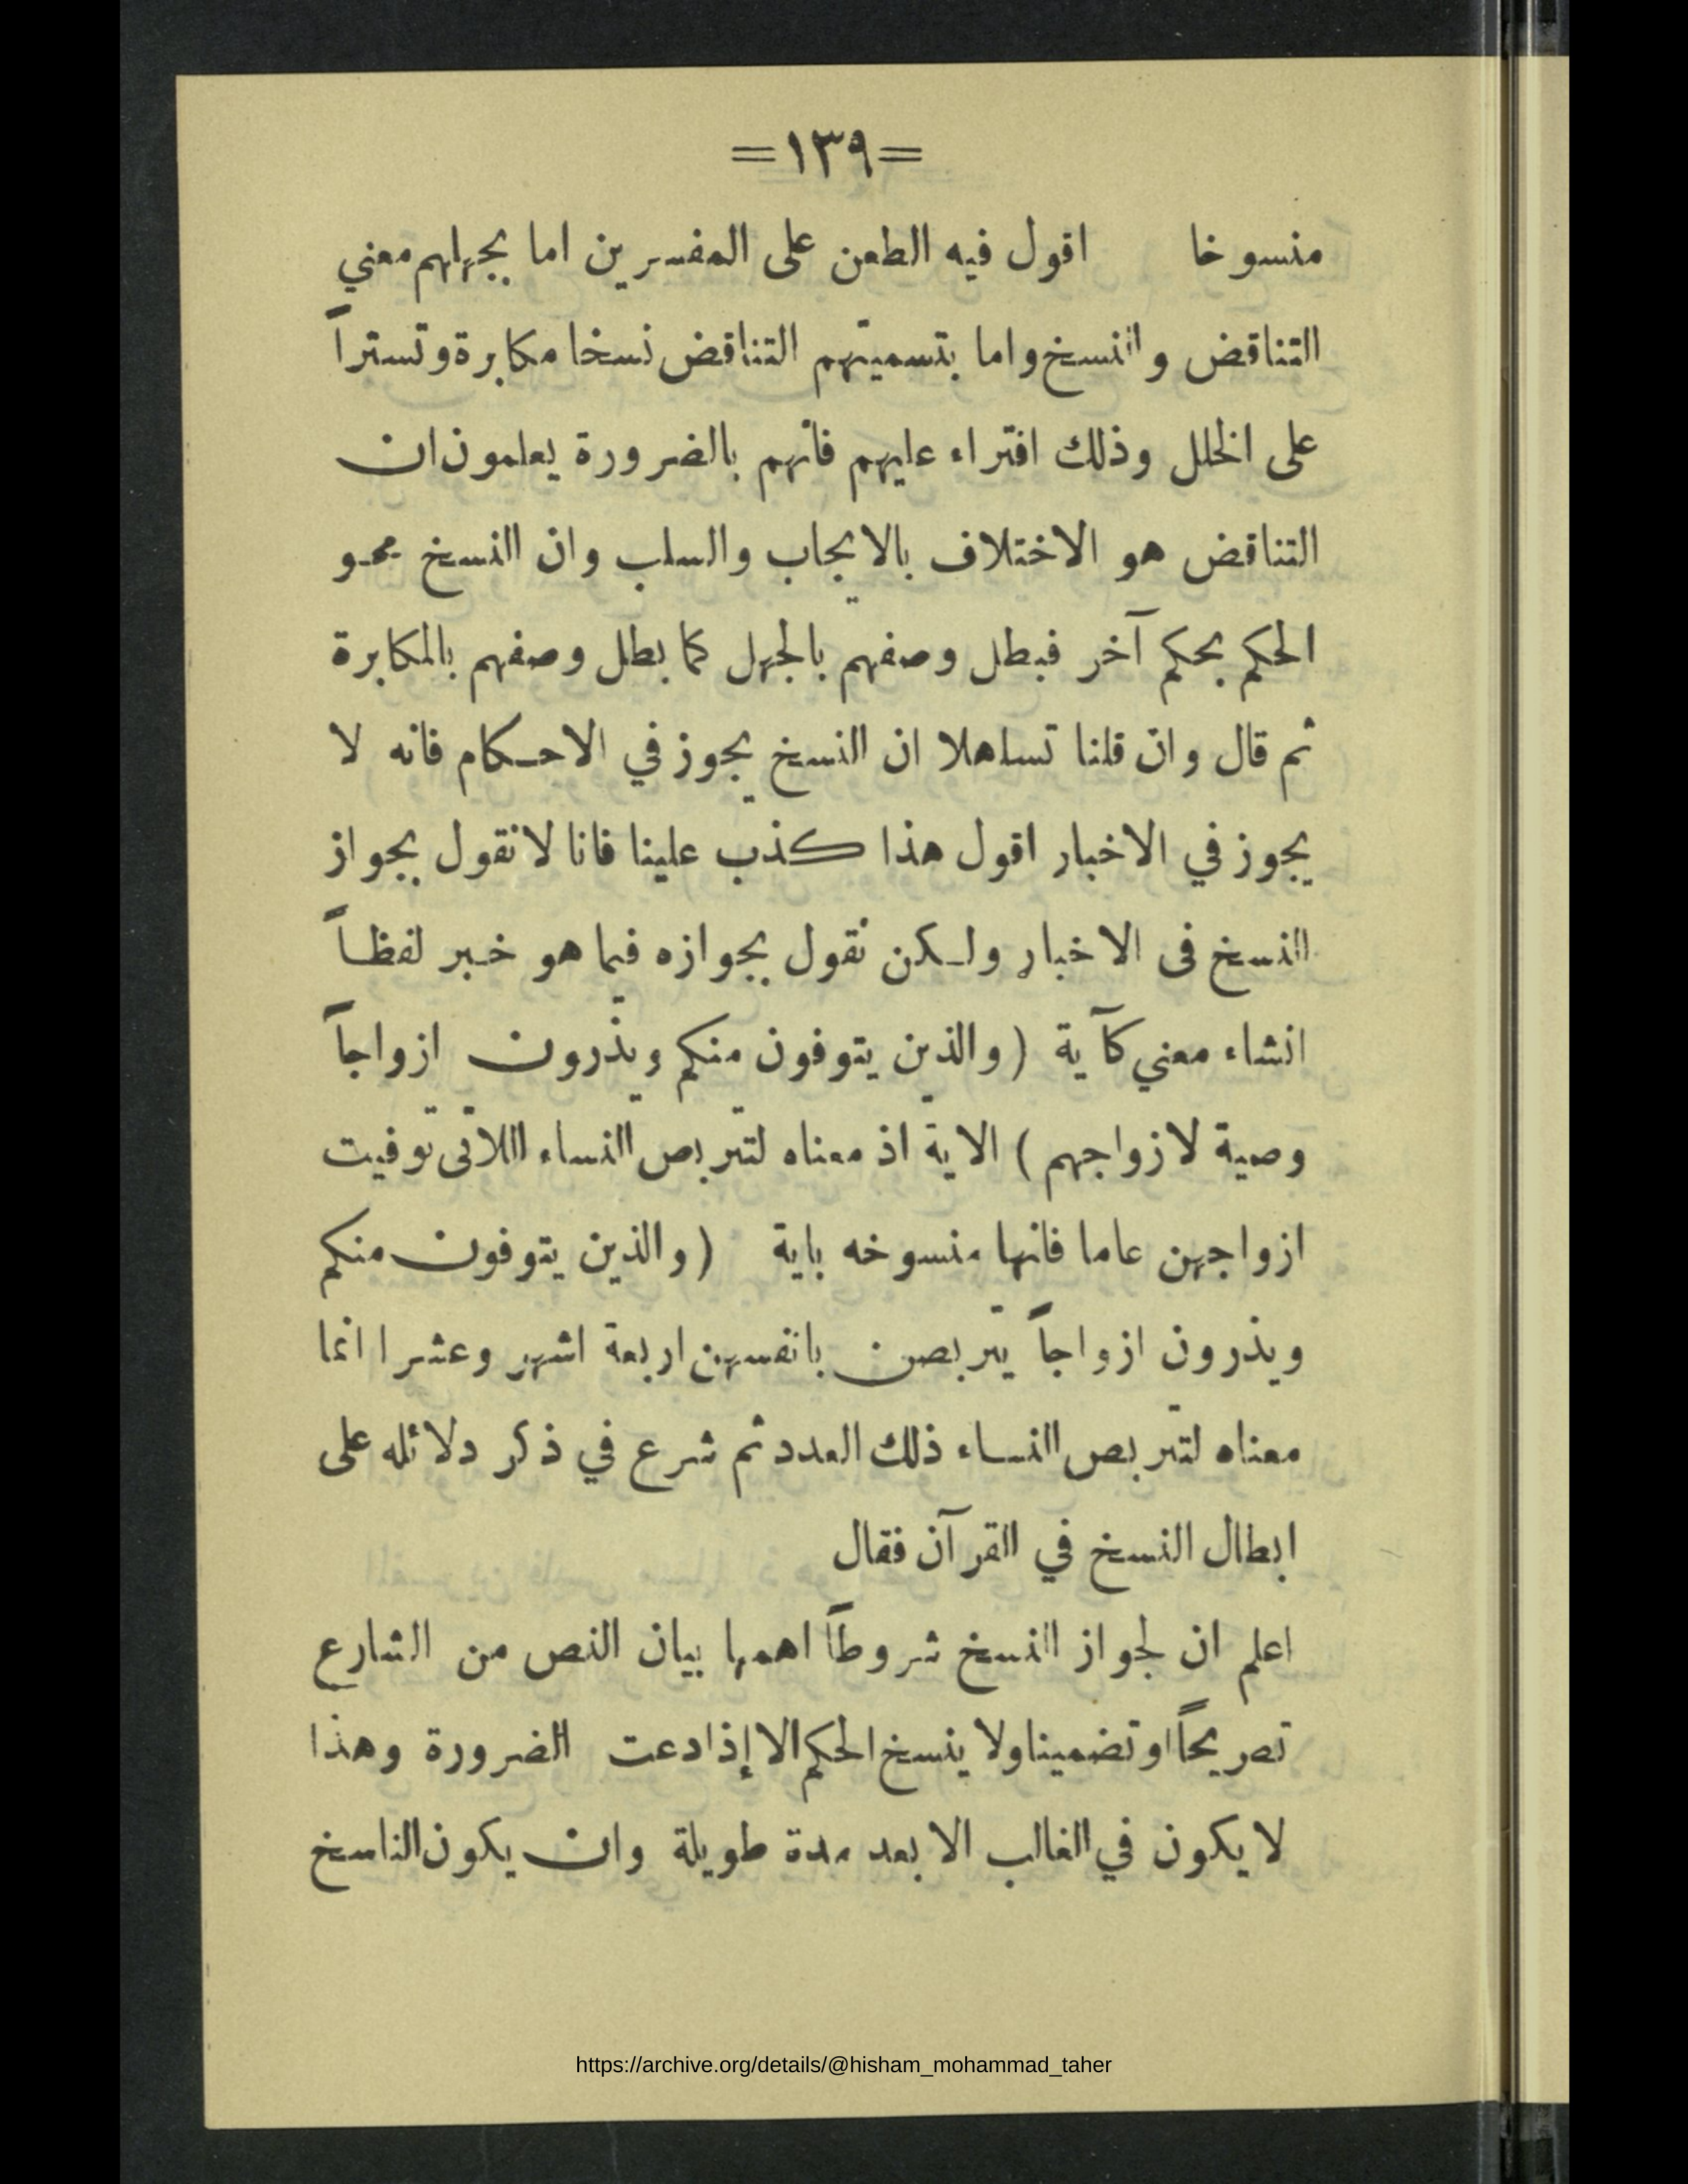 =١٣٩=
منسوخا اقول فيه الطعن على المفسرين اما بجهلهم معني
التناقض والنسخ واما بتسميتهم التناقض نسخا مكابرة وتستراً
على الخلل وذلك افتراء عليهم فأنهم بالضرورة يعلمون ان
التناقض هو الاختلاف بالايجاب والسلب وان النسخ محو
الحكم بحكم آخر فبطل وصفهم بالجهل كما بطل وصفهم بالمكابرة
ثم قال وان قلنا تساهلا ان النسخ يجوز في الاحكام فانه لا
يجوز في الاخبار اقول هذا كذب علينا فانا لا نقول بجواز
النسخ فى الاخبار ولكن نقول بجوازه فيما هو خبر لفظاً
انشاء معني كآية (والذين يتوفون منكم ويذرون ازواجاً
وصية لازواجهم) الاية اذ معناه لتتربص النساء اللاتى توفيت
ازواجهن عاما فانها منسوخه باية (والذين يتوفون منكم
ويذرون ازواجاً يتربصن بانفسهن اربعة اشهر وعشرا انما
معناه لتتربص النساء ذلك العدد ثم شرع في ذكر دلائله على
ابطال النسخ في القرآن فقال
اعلم ان لجواز النسخ شروطاً اهمها بيان النص من الشارع
تصريحاً او تضمينا ولا ينسخ الحكم الا إذا دعت الضرورة وهذا
لا يكون في الغالب الا بعد مدة طويلة وان يكون الناسخ
https://archive.org/details/@hisham_mohammad_taher